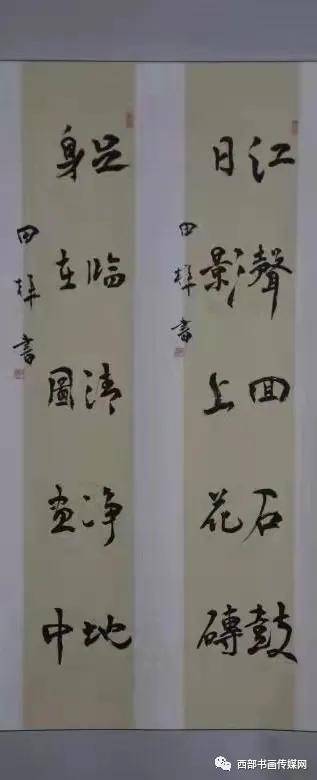 江聲回石鼓
日影上花磚
田樟書
足臨清净地
身在圖畫中
田樟書
西部书画传媒网